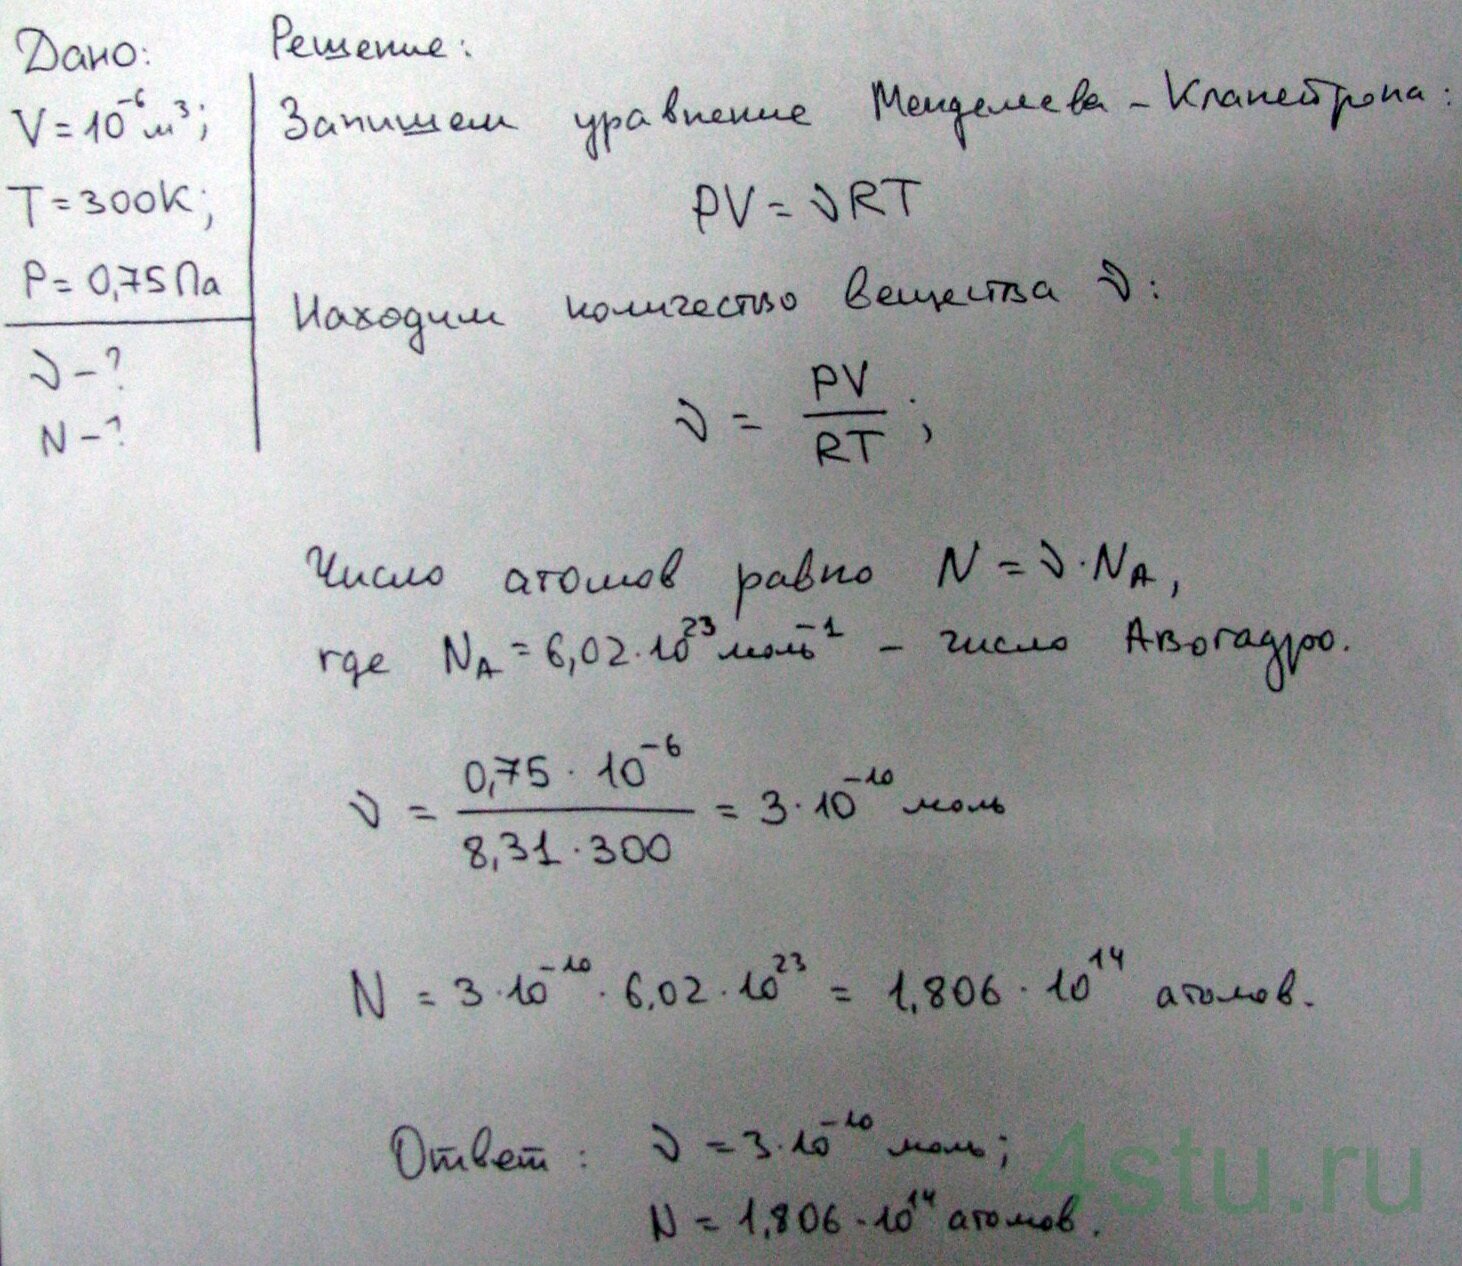 Дано:
V = 10⁻⁶ м³;
T = 300К;
P = 0,75 Па
ν - ?
N - ?
Решение:
Запишем уравнение Менделеева - Клапейрона:
PV = νRT
Находим количество вещества ν:
ν = PV / RT ;
Число атомов равно N = ν · N_A,
где N_A = 6,02 · 10²³ моль⁻¹ - число Авогадро.
ν = 0,75 · 10⁻⁶ / 8,31 · 300 = 3 · 10⁻¹⁰ моль
N = 3 · 10⁻¹⁰ · 6,02 · 10²³ = 1,806 · 10¹⁴ атомов.
Ответ: ν = 3 · 10⁻¹⁰ моль;
N = 1,806 · 10¹⁴ атомов.
4stu.ru